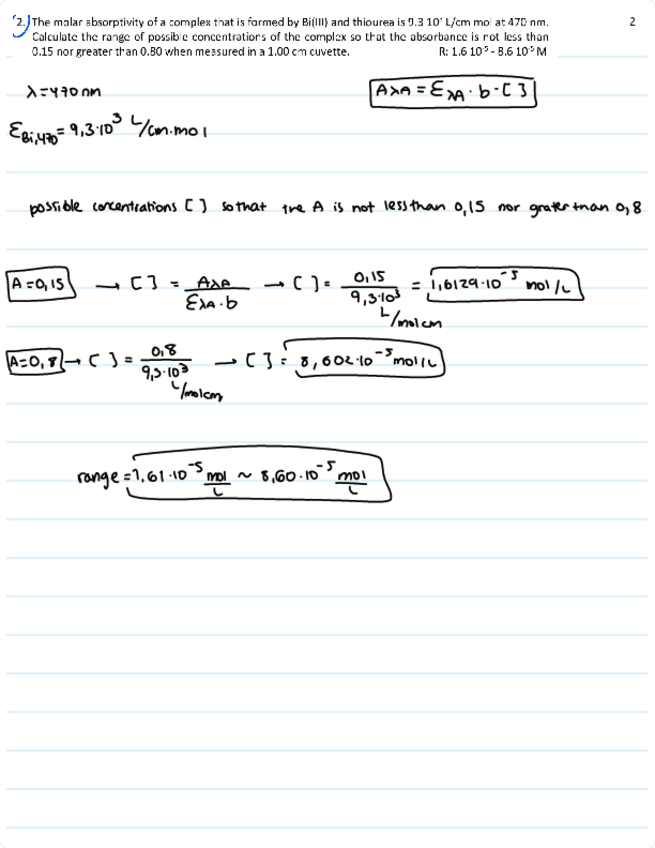 2. The molar absorptivity of a complex that is formed by Bi(III) and thiourea is 9.3 10³ L/cm mol at 470 nm. 2
Calculate the range of possible concentrations of the complex so that the absorbance is not less than
0.15 nor greater than 0.80 when measured in a 1.00 cm cuvette. R: 1.6 10⁻⁵ - 8.6 10⁻⁵ M
λ=470 nm
AλA = ελA · b · [ ]
εBi,470 = 9,3·10³ L/cm·mol
possible concentrations [ ] so that the A is not less than 0,15 nor grater than 0,8
A=0,15 → [ ] = AλA / ελA · b → [ ] = 0,15 / 9,3·10³ L/molcm = 1,6129·10⁻⁵ mol/L
A=0,8 → [ ] = 0,8 / 9,3·10³ L/molcm → [ ] = 8,602·10⁻⁵ mol/L
range = 1,61·10⁻⁵ mol/L ~ 8,60·10⁻⁵ mol/L